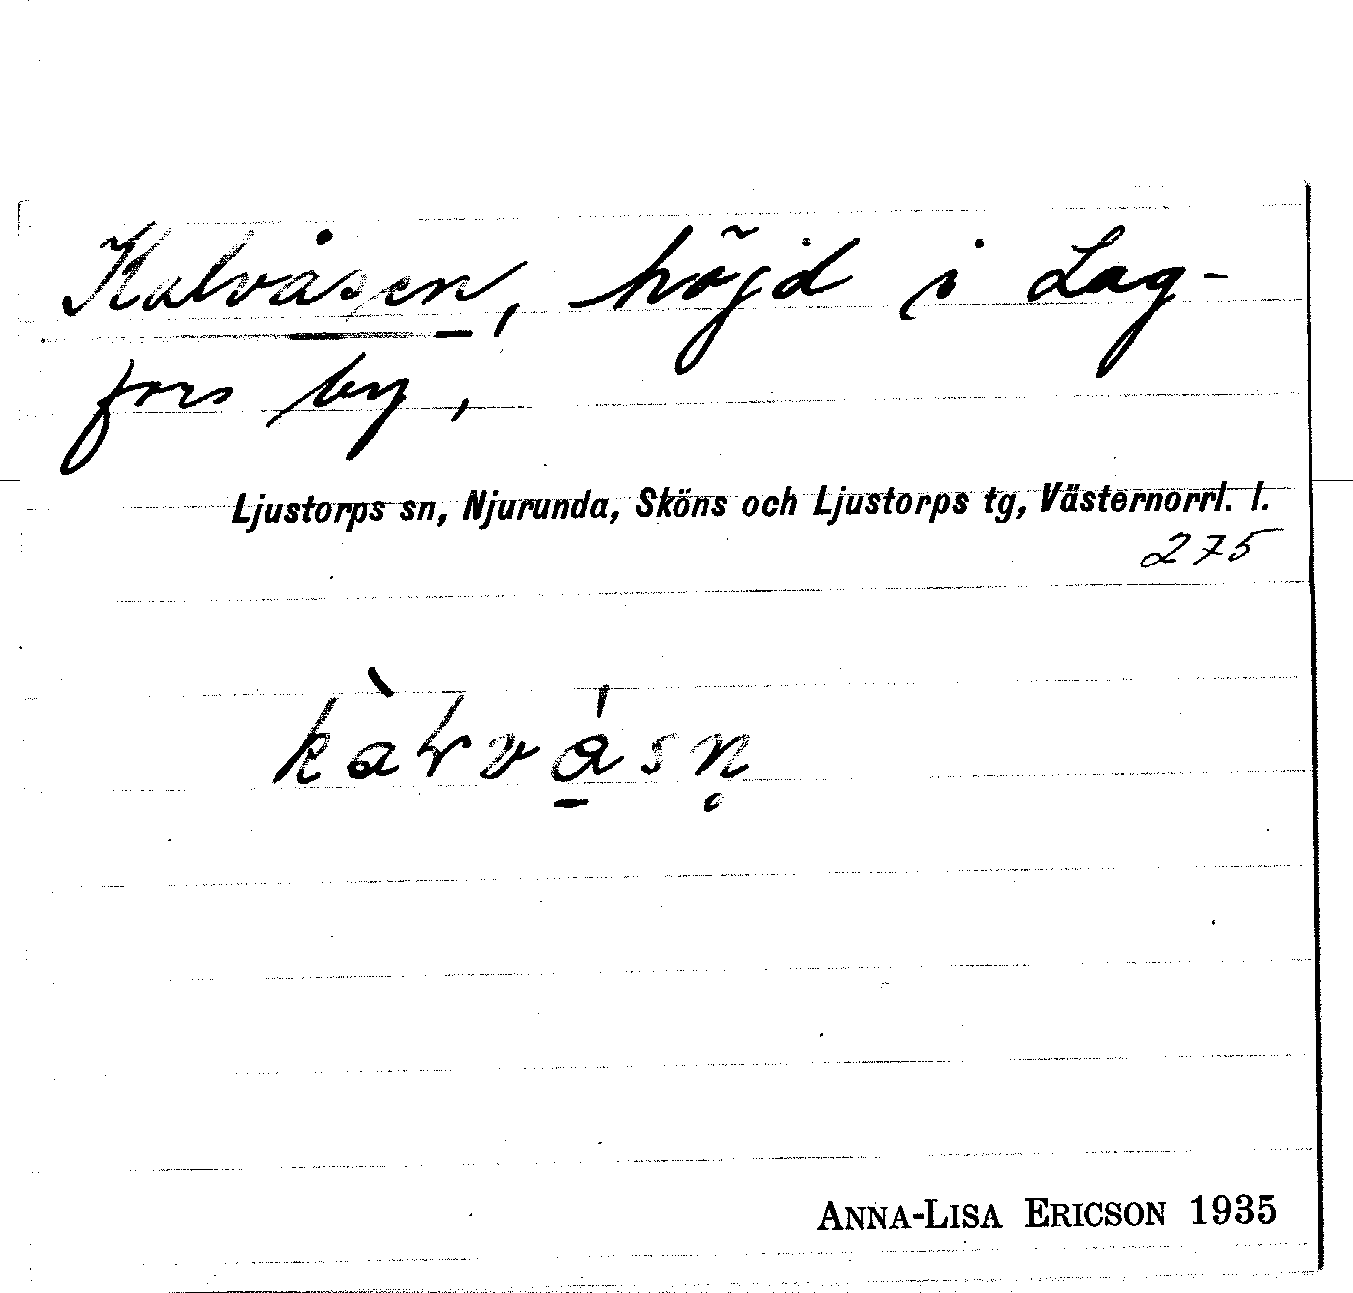 Kalvåsen, höjd i Lag-
fors by,
Ljustorps sn, Njurunda, Sköns och Ljustorps tg, Västernorrl. l.
275
ANNA-LISA ERICSON 1935